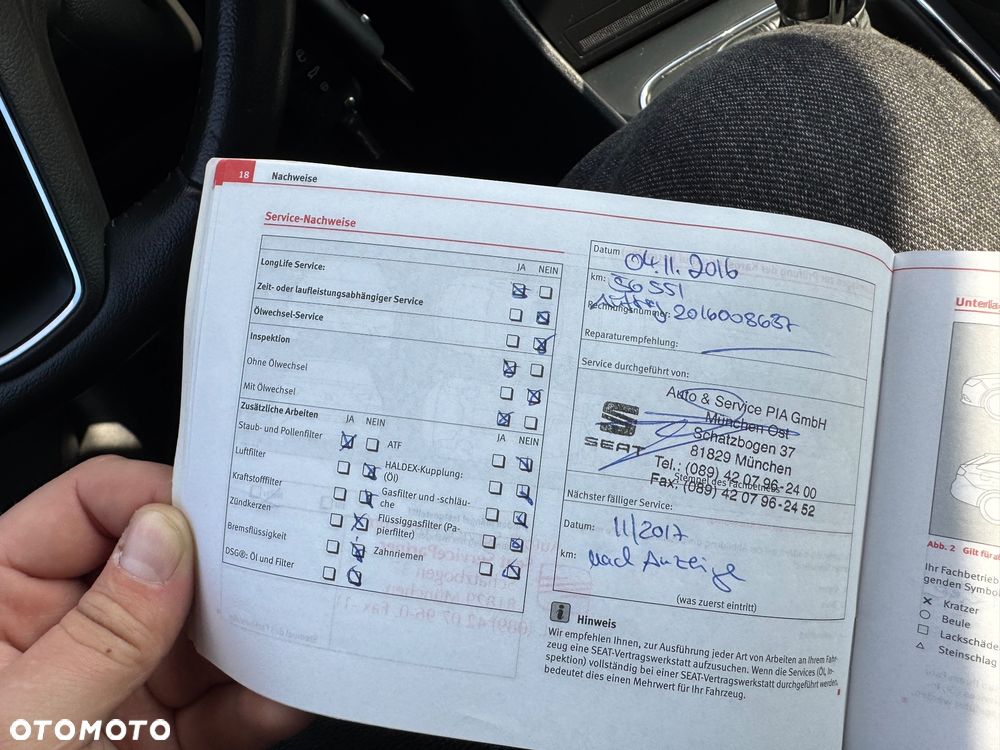 18 Nachweise
Service-Nachweise
JA NEIN
LongLife Service:
Zeit- oder laufleistungsabhängiger Service
Ölwechsel-Service
Inspektion
Ohne Ölwechsel
Mit Ölwechsel
Zusätzliche Arbeiten
JA NEIN
JA NEIN
Staub- und Pollenfilter
ATF
Luftfilter
HALDEX-Kupplung:
(Öl)
Kraftstofffilter
Gasfilter und -schläu-
che
Zündkerzen
Flüssiggasfilter (Pa-
pierfilter)
Bremsflüssigkeit
Zahnriemen
DSG®: Öl und Filter
Datum 04.11.2016
km: 36 551
Rechnungsnummer: Auftrag 2016008637
Reparaturempfehlung:
Service durchgeführt von:
SEAT
Auto & Service PIA GmbH
München Ost
Schatzbogen 37
81829 München
Tel.: (089) 42 07 96-24 00
Fax: (089) 42 07 96-24 52
Stempel des Fachbetriebs
Nächster fälliger Service:
Datum: 11/2017
km: nach Anzeige
(was zuerst eintritt)
i Hinweis
Wir empfehlen Ihnen, zur Ausführung jeder Art von Arbeiten an Ihrem Fahr-
zeug eine SEAT-Vertragswerkstatt aufzusuchen. Wenn die Services (Öl, In-
spektion) vollständig bei einer SEAT-Vertragswerkstatt durchgeführt werden,
bedeutet dies einen Mehrwert für Ihr Fahrzeug.
Abb. 2
Ihr Fachbetrieb
genden Symbo
Kratzer
Beule
Lackschäde
Steinschlag
OTOMOTO